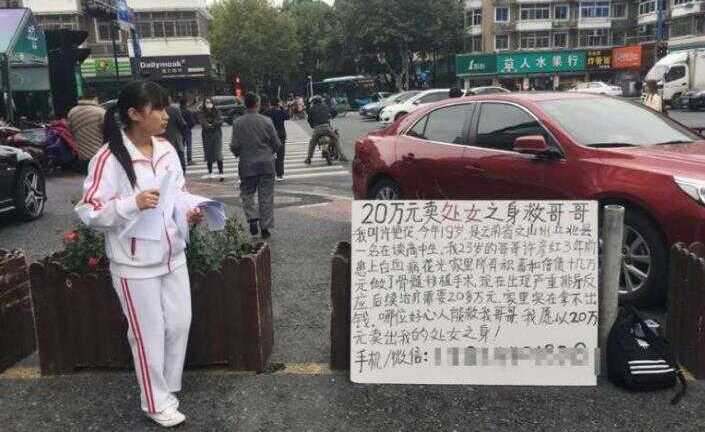 Dailymoak
壹号柜
良人水果行
炸骨
20万元卖处女之身救哥哥
我叫许艳花今年19岁是云南省文山州丘北县
一名在读高中生,我23岁的哥哥许彦红3年前
患上白血病花光家里所有积蓄和借债十几万
元做了骨髓移植手术,现在出现严重排异反
应后续治疗需要20多万元,家里实在拿不出
钱,哪位好心人能救我哥哥,我愿以20万
元卖出我的处女之身!
手机/微信: